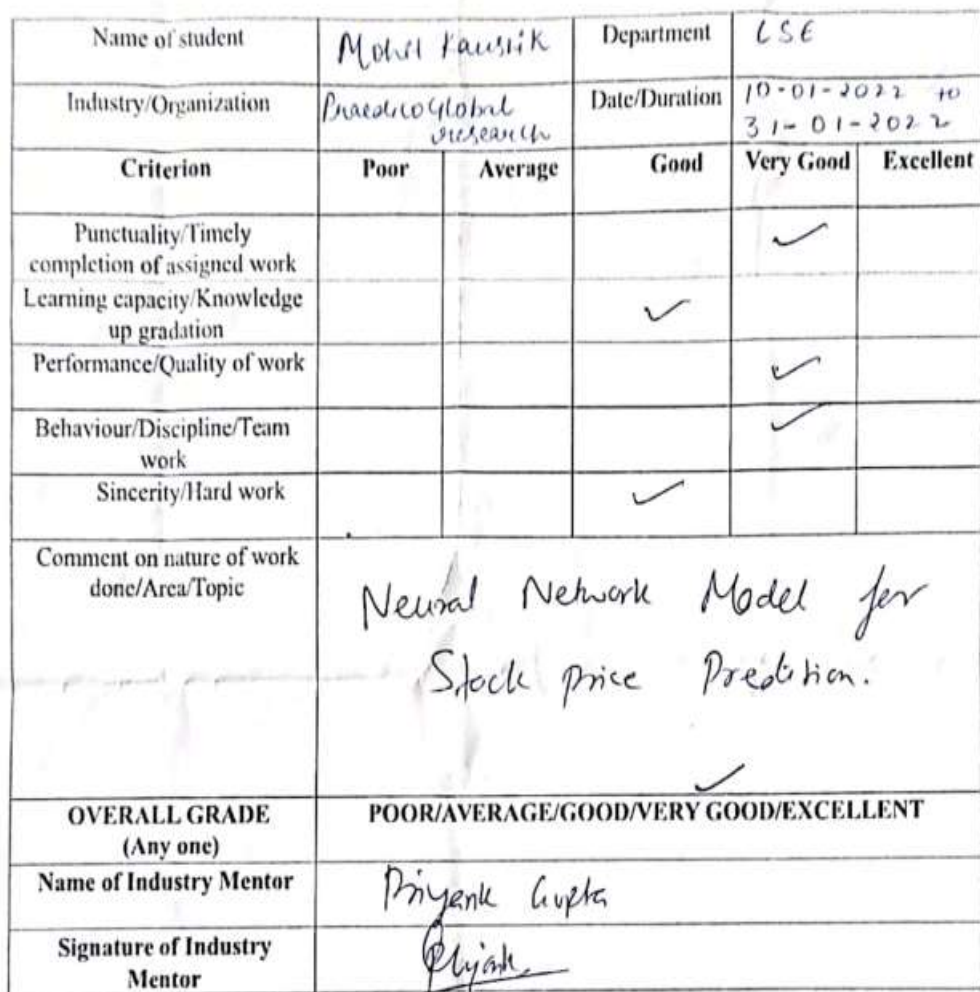 Name of student Mohit Kaushik Department CSE
Industry/Organization Praedico Global Date/Duration 10-01-2022 to
research 31-01-2022
Criterion Poor Average Good Very Good Excellent
Punctuality/Timely ✓
completion of assigned work
Learning capacity/Knowledge ✓
up gradation
Performance/Quality of work ✓
Behaviour/Discipline/Team ✓
work
Sincerity/Hard work ✓
Comment on nature of work
done/Area/Topic
Neural Network Model for
Stock price Predition.
✓
OVERALL GRADE POOR/AVERAGE/GOOD/VERY GOOD/EXCELLENT
(Any one)
Name of Industry Mentor Priyank Gupta
Signature of Industry Priyank
Mentor